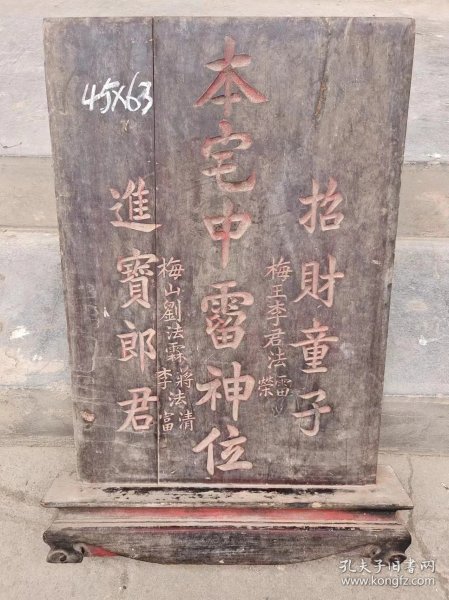 招財童子
梅王李君法雷
榮
本宅中霤神位
梅山劉法霖蔣法清
李富
進寶郎君
45X63
孔夫子旧书网
www.kongfz.com